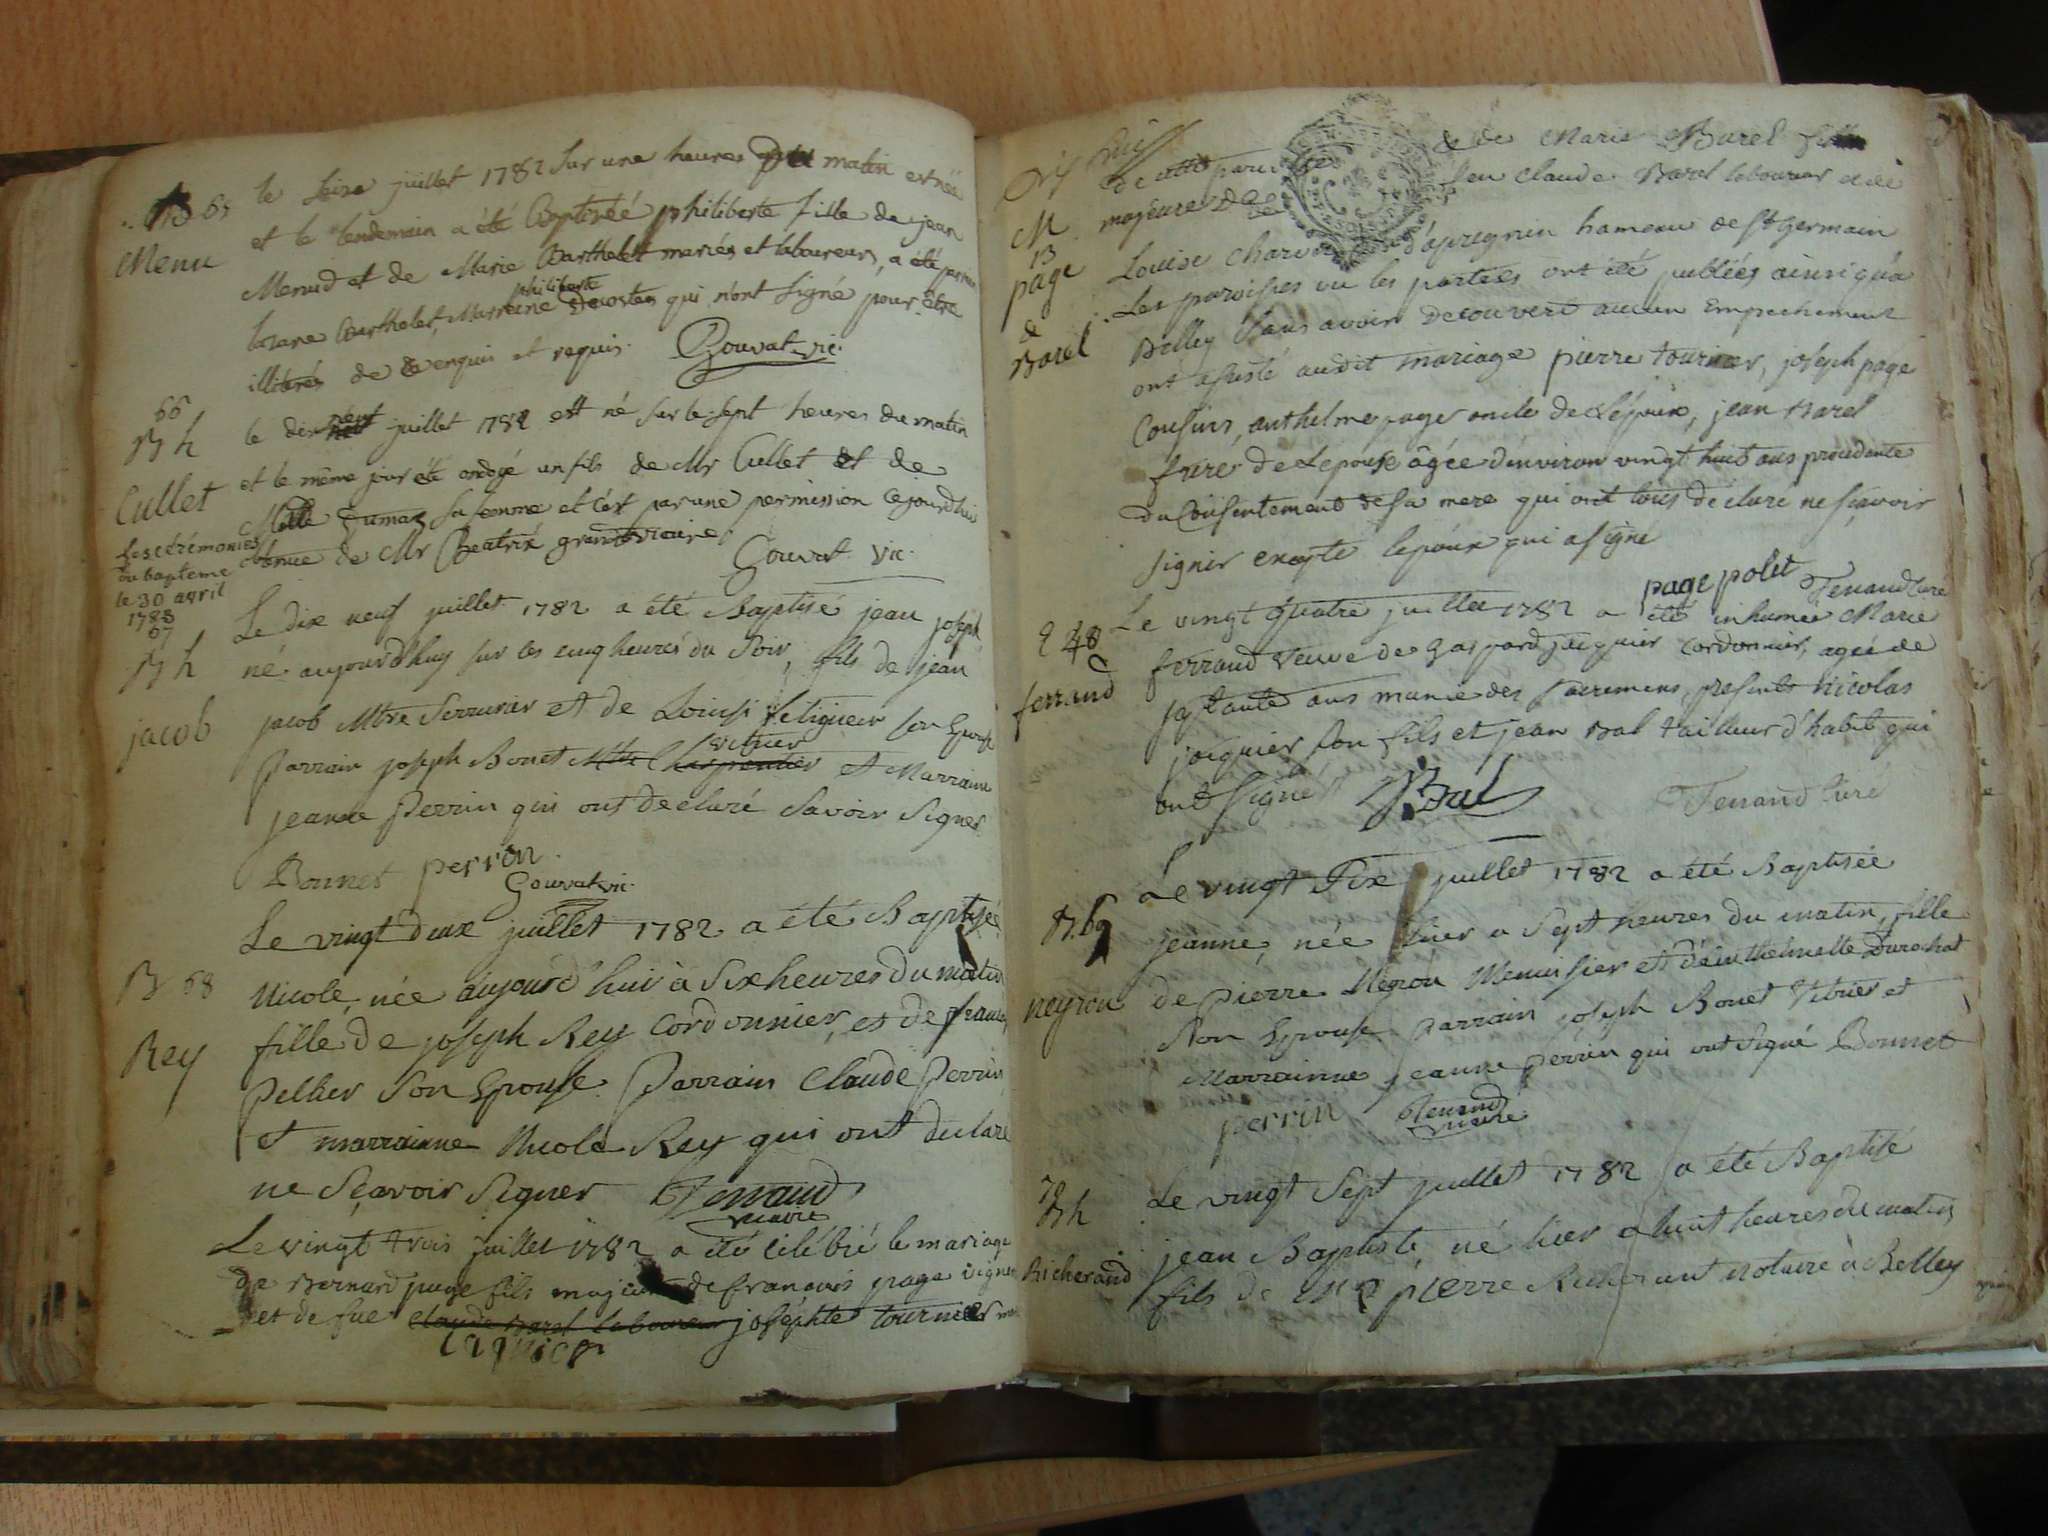 B 65
Menu
le seize juillet 1782 sur une heure du matin est née
et le lendemain a été Baptisée philiberte fille de jean
Menud et de Marie Barthelet mariés et laboureurs, a été parrain
Barthelet, Marreine philiberte Decostes qui n'ont signé pour être
illitérés de ce enquis et requis. Gouvat vic.
66
B h
Cullet
les cérémonies
du bapteme
le 30 avril
1783
le dix neuf juillet 1782 est né sur les sept heures du matin
et le même jour été ondoyé un fils de Mr Cullet et de
Dumaz sa femme et c'est par une permission cejourdhui
obtenue de Mr Béatrix grand vicaire
Gouvat vic.
67
B h
jacob
Le dix neuf juillet 1782 a été Baptisé jean joseph
né aujourd'huy sur les cinq heures du Soir, fils de jean
jacob Mtre Serrurier et de Louise son Epouse
Parrain joseph Bonet Mtre Charpentier vitrier et Marraine
jeanne Perrin qui ont declaré Savoir Signer.
Bonnet perrin
Gouvat vic.
B 68
Rey
Le vingt deux juillet 1782 a été Baptisée
Nicole, née aujourd'hui à Six heures du matin
fille de joseph Rey Cordonnier, et de
Pellier Son Epouse. Parrain Claude Perrin
et marrainne Nicole Rey qui ont declaré
ne Sçavoir Signer Ferrand
vicaire
Le vingt trois juillet 1782 a été célébré le mariage
de Bernard page fils majeur de francois page vigneron
et de fue claude Barel laboureur joséphte tournier
M
13
page
&
Barel
de cette paroisse de de Marie Barel fille
majeure de feu Claude Barel laboureur et de
Louise d'apregnin hameau de St germain
Les paroisses ou les parties ont été publiées ainsi qu'a
Belley Sans avoir decouvert aucun Empechement
ont assisté audit mariage pierre tournier, joseph page
Cousins, anthelme page oncle de l'époux, jean Barel
frere de l'epouse âgée d'environ vingt huit ans procedante
du Consentement de Sa mere qui ont tous déclaré ne sçavoir
signer excepte l'epoux qui a signé
page polet Ferrand curé
S 48
ferrand
Le vingt quatre juillet 1782 a été inhumée Marie
ferrand veuve de Gaspard jacquier cordonnier, agée de
soixante ans munie des Sacremens, présents Nicolas
jacquier Son fils et jean Bal tailleur d'habit qui
ont Signé Bal Ferrand curé
B. 69
neyron
Le vingt Six juillet 1782 a été Baptisée
jeanne, née hier a Sept heures du matin, fille
de Pierre Neyron Menuisier et d'anthelmette Durochat
Son Epouse Parrain joseph Bonet Vitrier et
Marrainne jeanne perrin qui ont Signé Bonnet
perrin Ferrand
vicaire
70
B h
Richerand
Le vingt Sept juillet 1782 a été Baptisé
jean Baptiste, né hier a huit heures du matin
fils de pierre Richerant Notaire à Belley